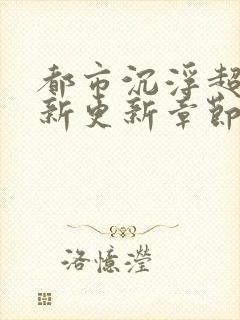 都市沉浮超
新更新章節
洛憶瀅